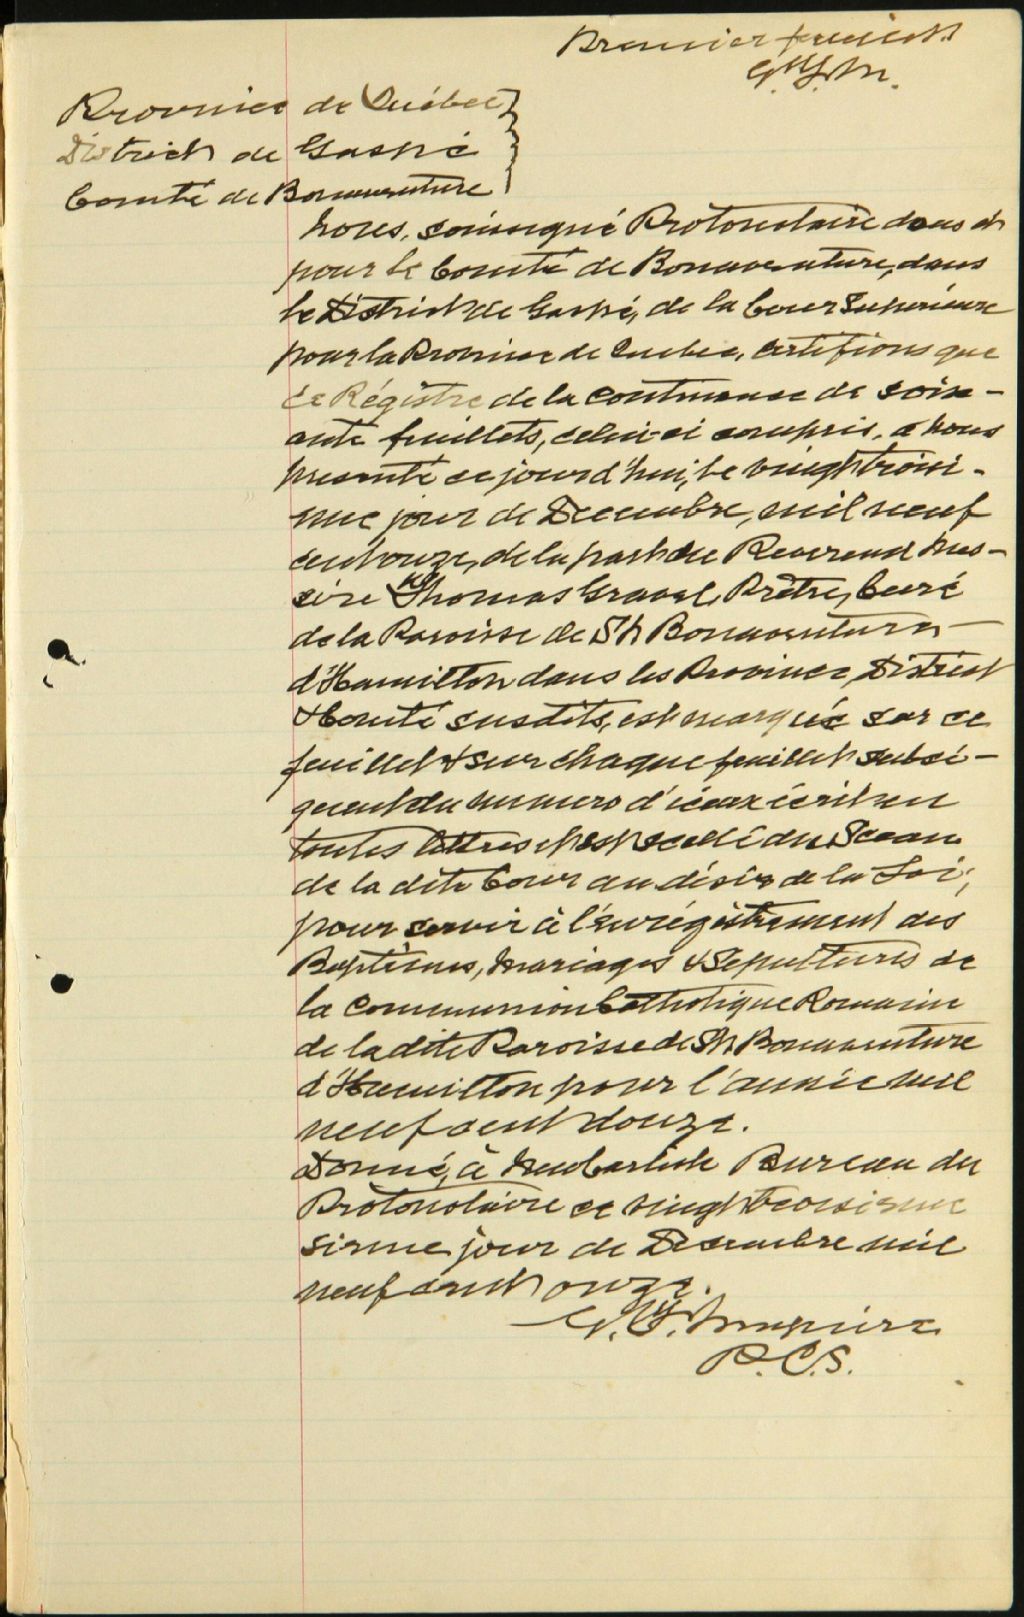 Premier feuillet
Province de Québec
District de Gaspé
Comté de Bonaventure
Nous, soussigné Protonotaire dans et
pour le Comté de Bonaventure, dans
le District de Gaspé, de la Cour Supérieure
pour la Province de Quebec, certifions que
ce Régistre de la contenance de soix-
ante feuillets, celui-ci compris, a nous
presenté ce jourd'hui, le vingt troisi-
eme jour de Decembre, mil neuf
cent onze, de la part du Reverend Mes-
sire Thomas Gravel, Prêtre, Curé
de la Paroisse de St Bonaventure
d'Hamilton dans les Province, District
& Comté susdits, est marqué sur ce
feuillet & sur chaque feuillet subsé-
quent du numero d'iceux écrit en
toutes lettres et est scellé du Sceau
de la dite Cour au désir de la Loi,
pour servir à l'enrégistrement des
Baptêmes, Mariages & Sepultures de
la Communion Catholique Romaine
de la dite Paroisse de St Bonaventure
d'Hamilton pour l'année mil
neuf cent douze.
Donné, à New Carlisle Bureau du
Protonotaire ce vingt troisieme
sieme jour de Decembre mil
neuf cent onze.
P.C.S.